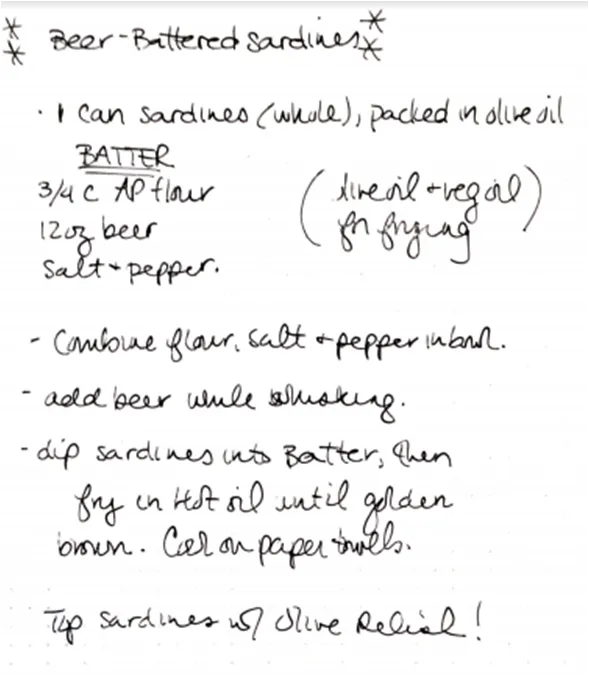 ** Beer-Battered Sardines **
· 1 can sardines (whole), packed in olive oil
BATTER
3/4 c AP flour
12oz beer
salt + pepper.
(olive oil + veg oil)
for frying
- Combine flour, salt + pepper in bowl.
- add beer while whisking.
- dip sardines into Batter, then
fry in Hot oil until golden
brown. Cool on paper towels.
Top sardines w/ Olive Relish!